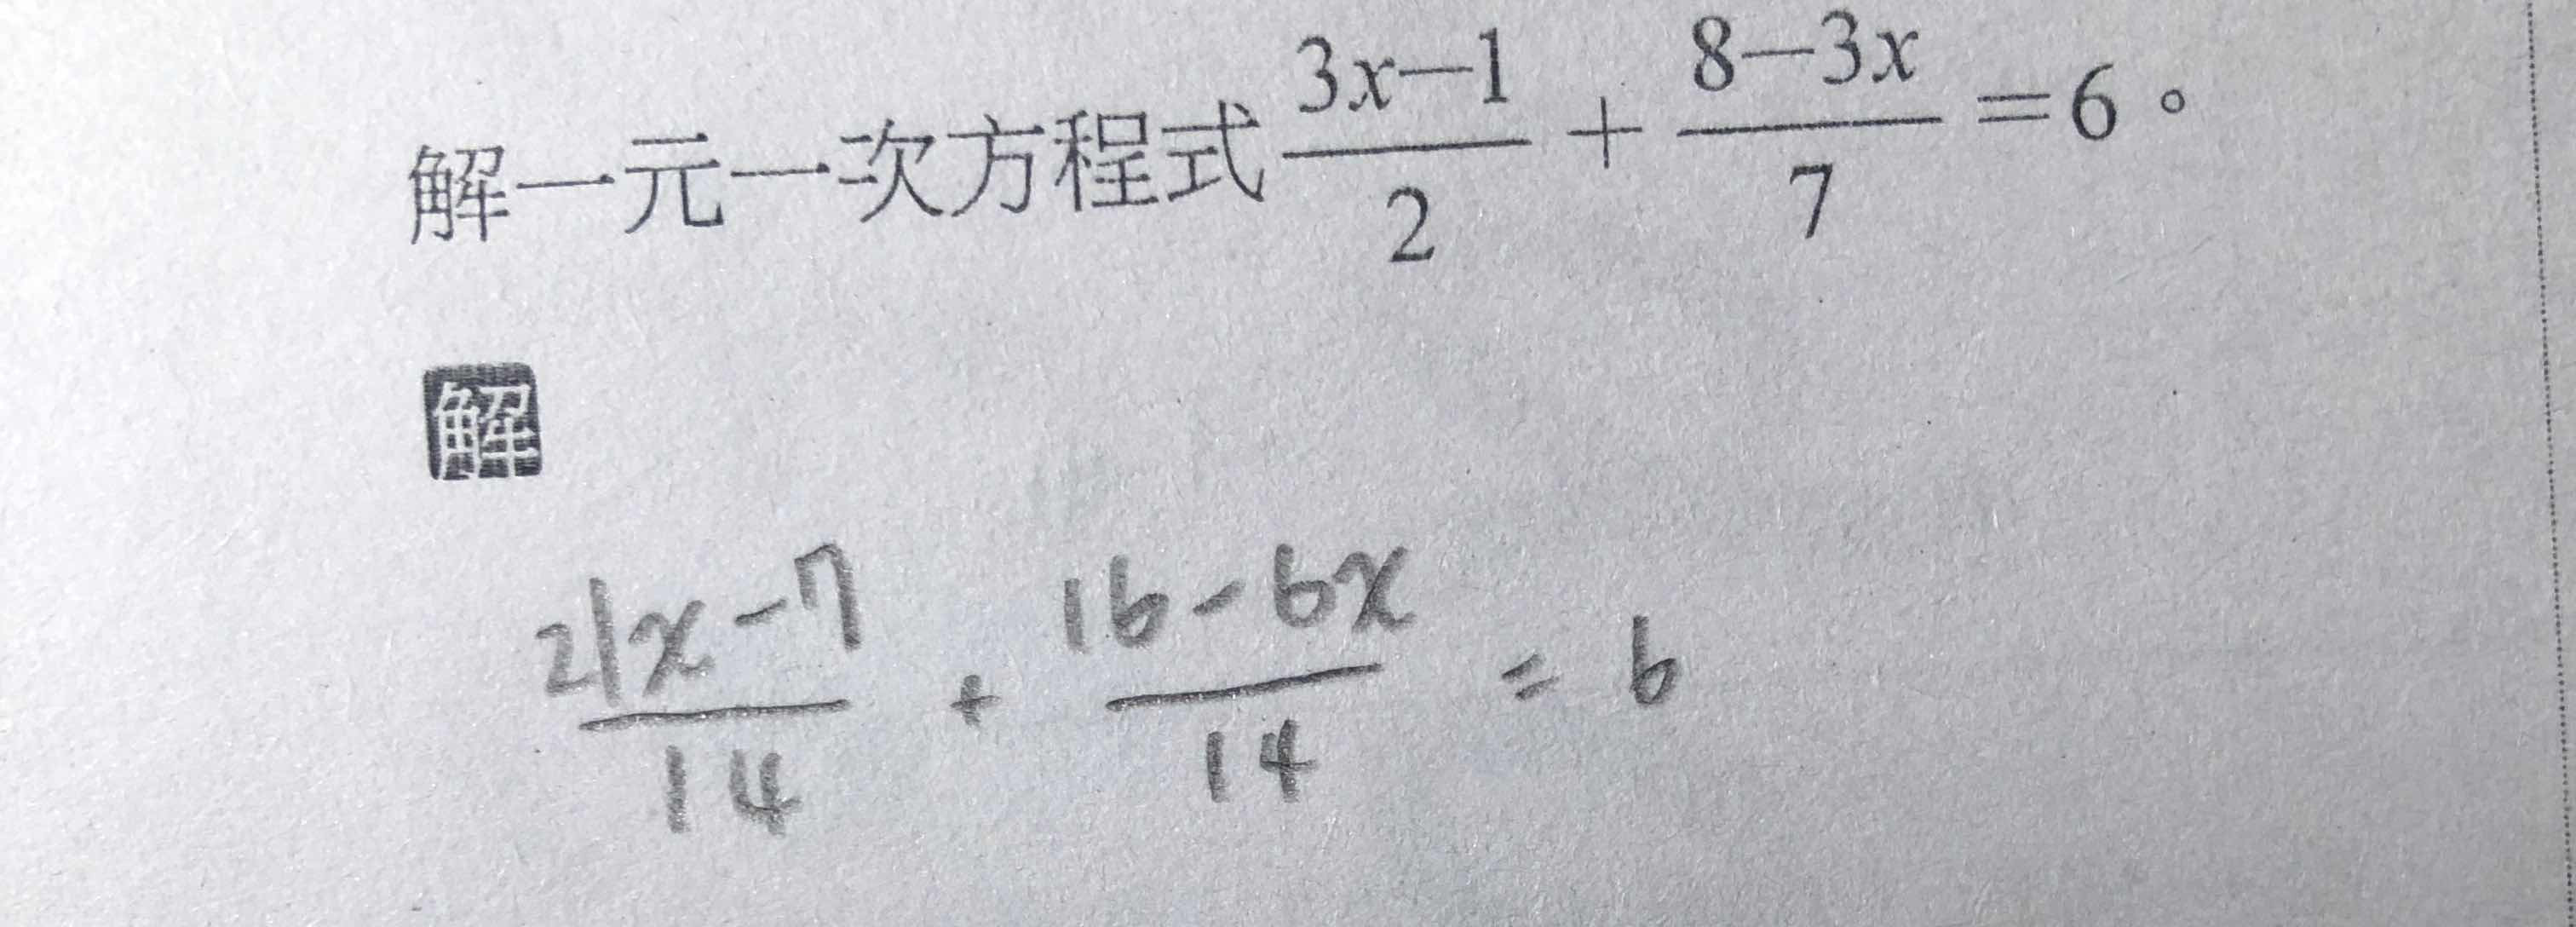 解一元一次方程式 \frac{3x-1}{2} + \frac{8-3x}{7} =6。
解
\frac{21x-7}{14} + \frac{16-6x}{14} = 6